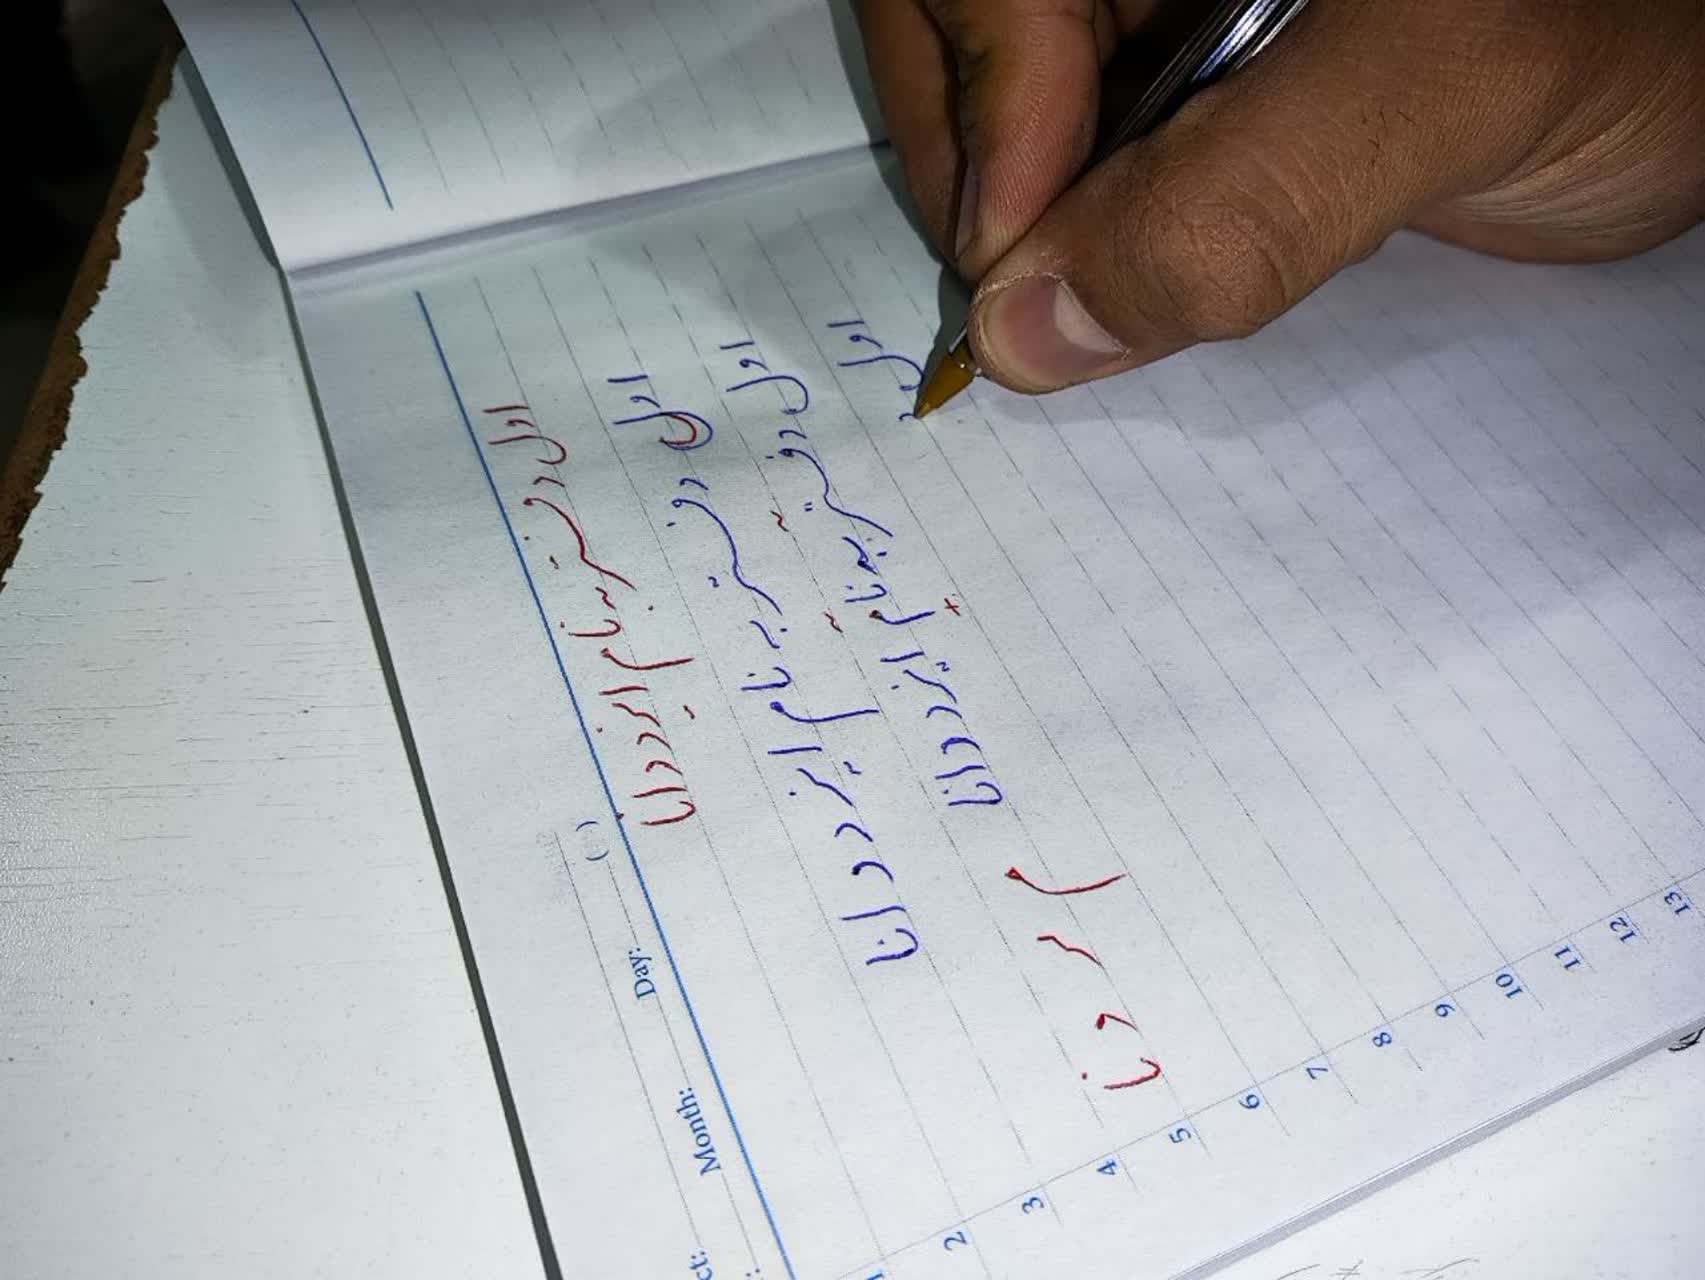 اول دفتر بنام ایزد دانا
اول دفتر به نام ایزد دانا
اول دفتر بنام ایزد دانا
اول د
م ر د نا
( )
Day:
Month:
ct:
1
2
3
4
5
6
7
8
9
10
11
12
13